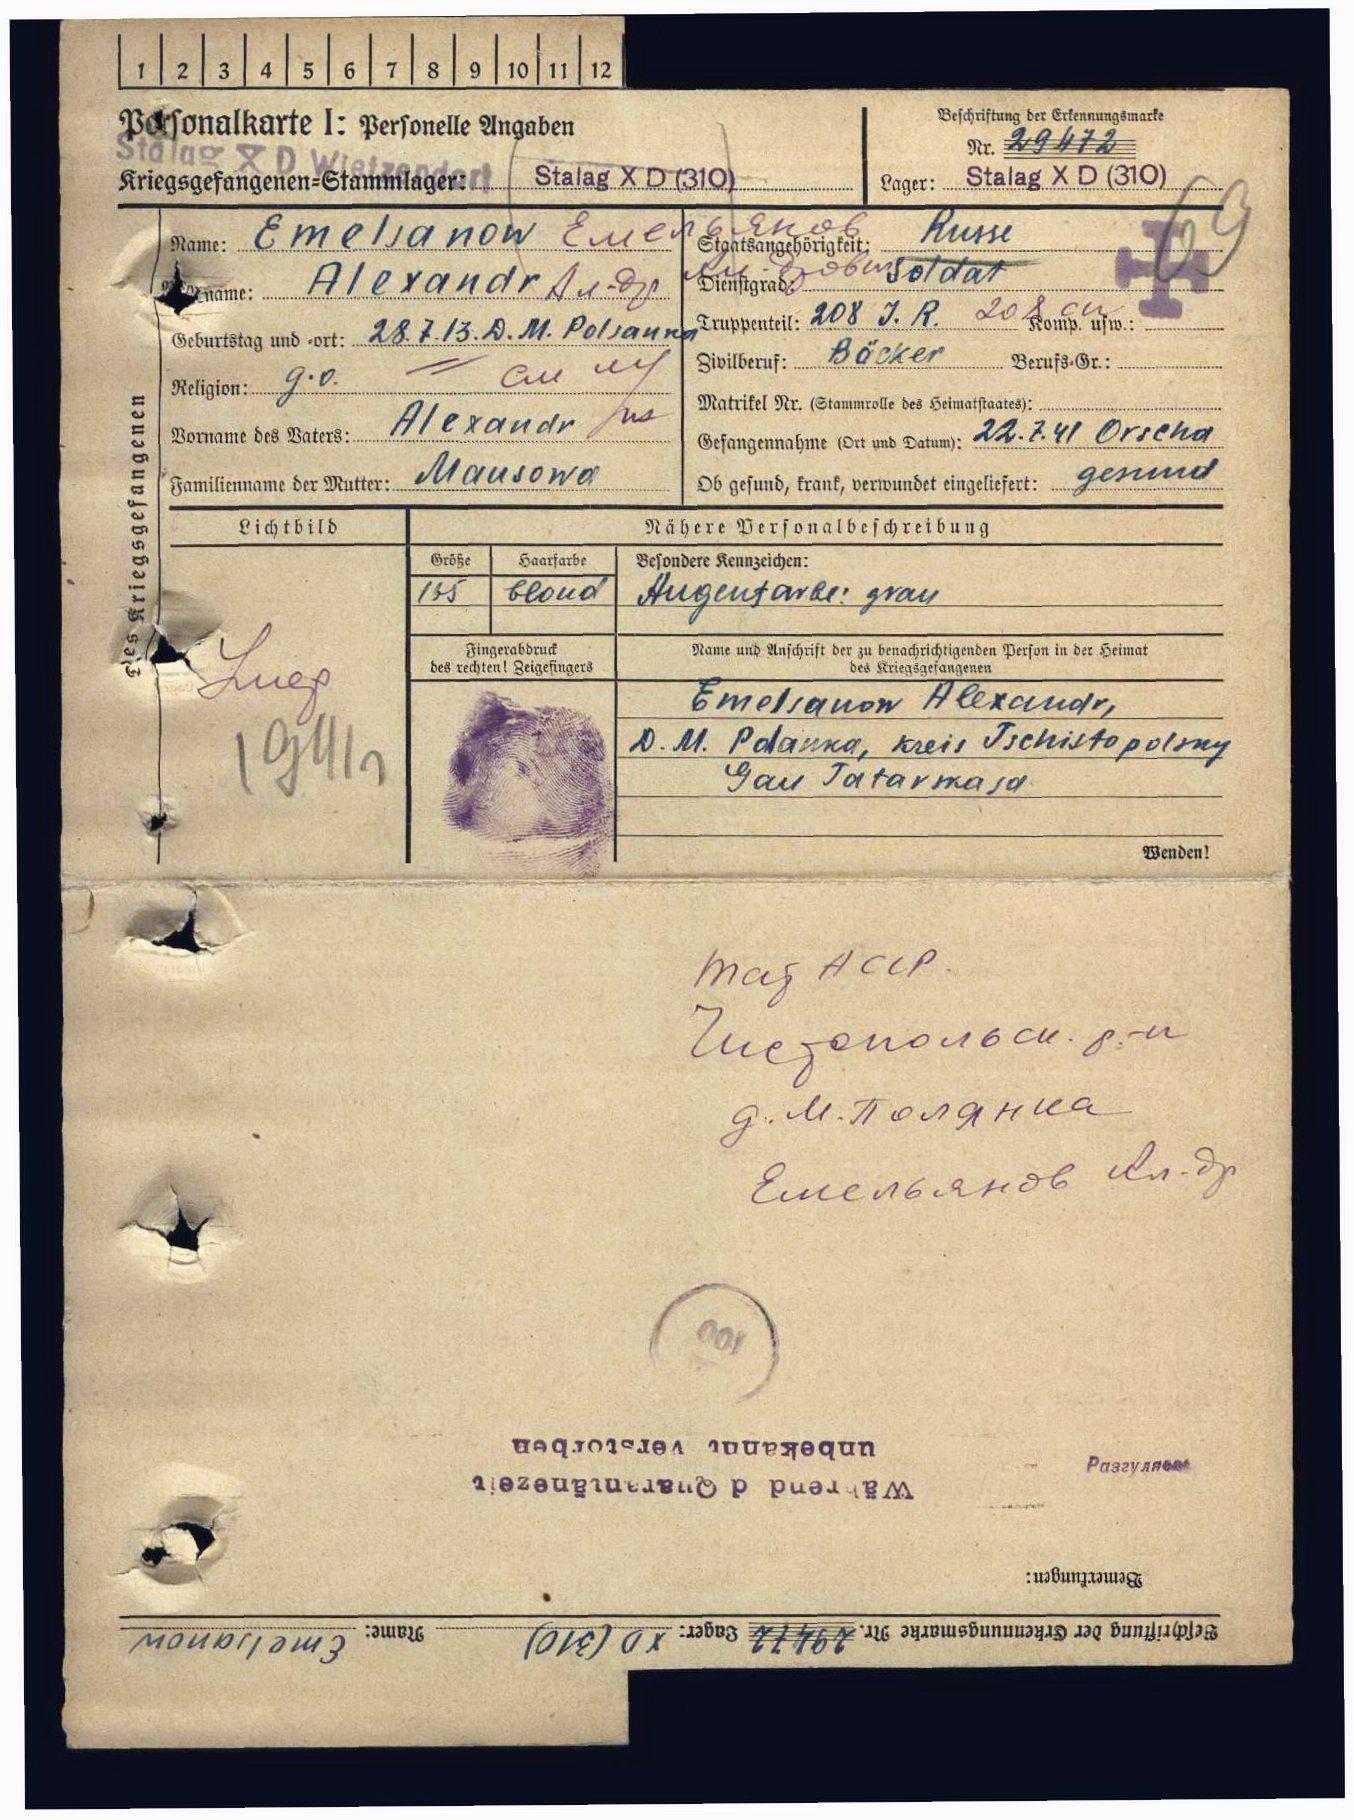 1 2 3 4 5 6 7 8 9 10 11 12
Personalkarte I: Personelle Angaben
Beschriftung der Erkennungsmarke
Nr. 29472
Stalag X D Wietzendorf
Kriegsgefangenen=Stammlager: Stalag X D (310)
Lager: Stalag X D (310)
69
des Kriegsgefangenen
Name: Emelsanow Емельянов
Vorname: Alexandr Ал-др
Geburtstag und -ort: 28.7.13. D. M. Polsanka
Religion: g.o.
Vorname des Vaters: Alexandr
Familienname der Mutter: Mausowa
Staatsangehörigkeit: Russe
Dienstgrad: Soldat
Truppenteil: 208 J. R. 208 сп Komp. usw.:
Zivilberuf: Bäcker Berufs-Gr.:
Matrikel Nr. (Stammrolle des Heimatstaates):
Gefangennahme (Ort und Datum): 22.7.41 Orscha
Ob gesund, krank, verwundet eingeliefert: gesund
Lichtbild
Nähere Personalbeschreibung
Größe Haarfarbe Besondere Kennzeichen:
165 blond Augenfarbe: grau
Fingerabdruck
des rechten! Zeigefingers
Name und Anschrift der zu benachrichtigenden Person in der Heimat
des Kriegsgefangenen
Emelsanow Alexandr,
D. M. Polanka, kreis Tschistopolsky
Gau Tatarskaja
Умер
1941
Wenden!
Тат АССР.
Чистопольск. р-н
д. М. Полянка
Емельянов Ал-др
100
Während d Quarantänezeit
unbekannt verstorben
Разгуляев
Bemerkungen:
Beschriftung der Erkennungsmarke Nr. 29472 Lager: XD (310) Name: Emelsanow